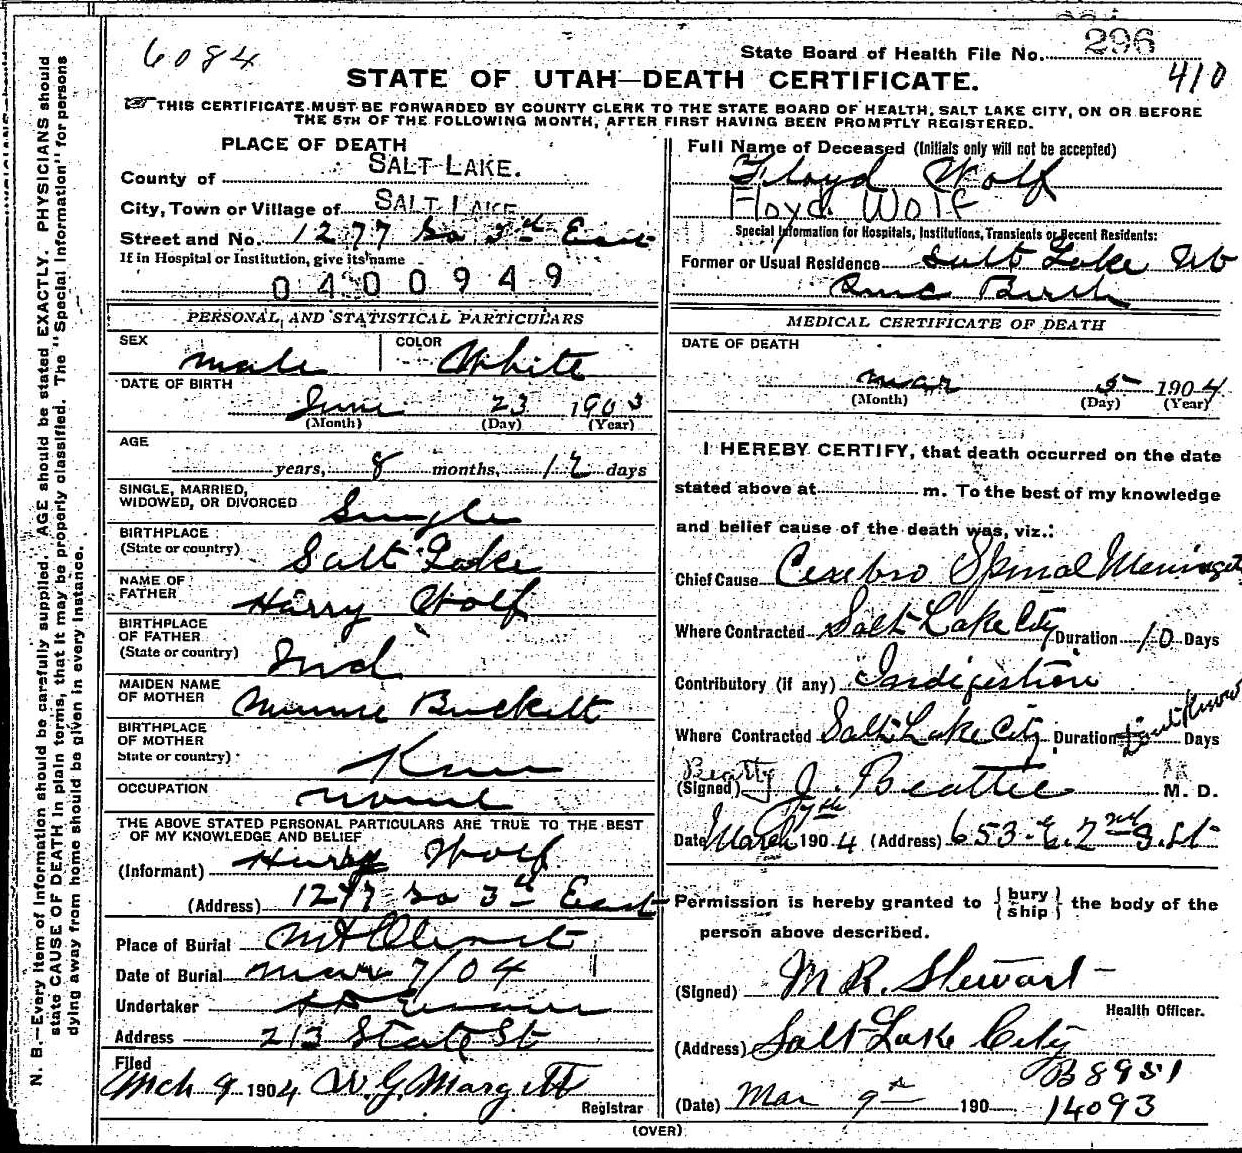 6084
State Board of Health File No. 296
410
STATE OF UTAH—DEATH CERTIFICATE.
THIS CERTIFICATE MUST BE FORWARDED BY COUNTY CLERK TO THE STATE BOARD OF HEALTH, SALT LAKE CITY, ON OR BEFORE
THE 5TH OF THE FOLLOWING MONTH, AFTER FIRST HAVING BEEN PROMPTLY REGISTERED.
PLACE OF DEATH
County of SALT LAKE.
City, Town or Village of SALT LAKE
Street and No. 1277 So 3rd East
If in Hospital or Institution, give its name
0400949
Full Name of Deceased (Initials only will not be accepted)
Floyd Wolf
Floyd Wolf
Special Information for Hospitals, Institutions, Transients or Recent Residents:
Former or Usual Residence Salt Lake
Since Birth
PERSONAL AND STATISTICAL PARTICULARS
SEX male COLOR White
DATE OF BIRTH
June 23 1903
(Month) (Day) (Year)
AGE
years, 8 months, 12 days
SINGLE, MARRIED,
WIDOWED, OR DIVORCED Single
BIRTHPLACE
(State or country) Salt Lake
NAME OF
FATHER Harry Wolf
BIRTHPLACE
OF FATHER
(State or country) Ind
MAIDEN NAME
OF MOTHER Minnie
BIRTHPLACE
OF MOTHER
State or country)
OCCUPATION
THE ABOVE STATED PERSONAL PARTICULARS ARE TRUE TO THE BEST
OF MY KNOWLEDGE AND BELIEF
(Informant) Harry Wolf
(Address) 1277 So 3rd East
Place of Burial Mt Olivet
Date of Burial Mar 7/04
Undertaker
Address 213 State St
Filed
Mch 9 1904 W. G. Margett
Registrar
MEDICAL CERTIFICATE OF DEATH
DATE OF DEATH
Mar 5 1904
(Month) (Day) (Year)
I HEREBY CERTIFY, that death occurred on the date
stated above at m. To the best of my knowledge
and belief cause of the death was, viz.:
Chief Cause Cerebro Spinal
Where Contracted Salt Lake City Duration 10 Days
Contributory (if any) Indigestion
Where Contracted Salt Lake City Duration Dont Know Days
Beatty
(Signed) J. Beattie M. D.
Date March 7th 1904 (Address) 653 E. 2nd S. St
Permission is hereby granted to {bury/ship} the body of the
person above described.
(Signed) M R. Stewart
Health Officer.
(Address) Salt Lake City
B8951
(Date) Mar 9th 190
14093
(OVER)
N. B.—Every item of information should be carefully supplied. AGE should be stated EXACTLY. PHYSICIANS should
state CAUSE OF DEATH in plain terms, that it may be properly classified. The "Special Information" for persons
dying away from home should be given in every instance.